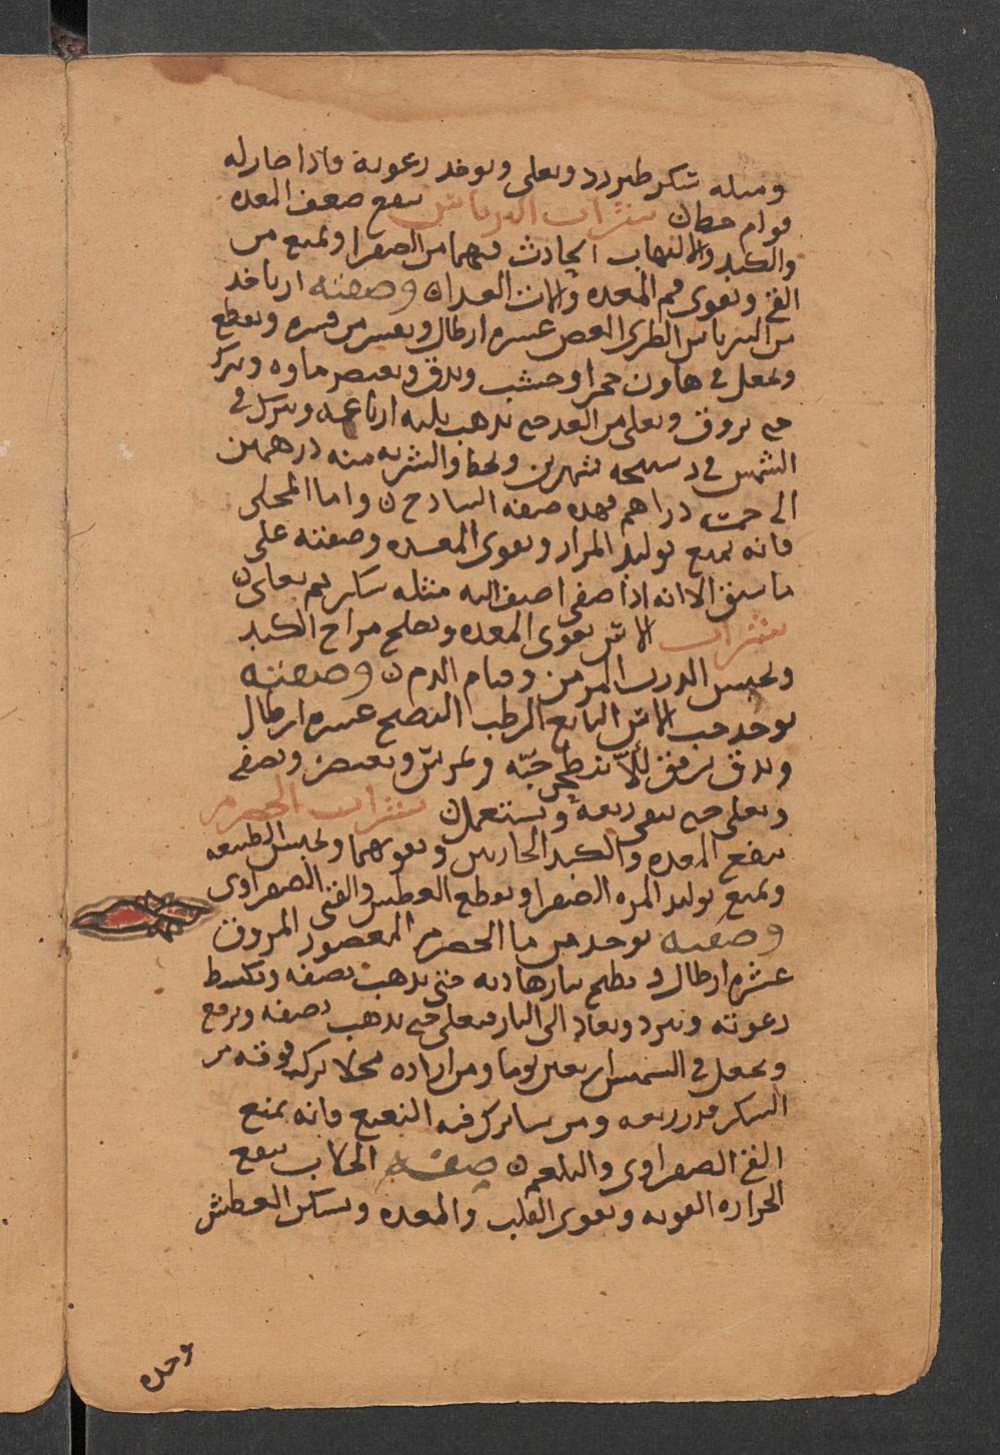 ومثله سكر طبرزد ويغلى ويوخد رغوته فاذا صار له
قوام حطان شراب الريباس ينفع ضعف المعده
والكبد والالتهاب الحادث فيهما من الصفرا ويمنع من
القي ويقوى فم المعده والات الغدان وصفته ان ياخد
من الريباس الطرى الغض عشره ارطال ويقشر من قشره ويقطع
ويجعل في هاون حجرا وخشب ويدق ويعتصر ماوه ويترك
حتى يروق ويغلى من الغد حتى يذهب ثلثه ارباعه ويترك في
الشمس في د شهرين ويحط والشربه منه درهمين
الى خمسة دراهم فهده صفه السادح ن واما المحلى
فانه يمنع توليد المرار ويقوى المعده وصفته على
ما سبق الا انه اذا صفى اضيف اليه مثله سكر ثم يغلى ن
شراب الاس يقوى المعده ويصلح مزاج الكبد
ويحبس الدرب المزمن وقيام الدم ن وصفته
يوخد حب الاس اليانع الرطب النضج عشره ارطال
ويدق برفق لئلا ينطحن حبّه ويمرس ويعتصر ويصفى
ويغلى حتى يبقى ربعه ويستعمل ن شراب الحصرم
ينفع المعده والكبد الحارين ويقويهما ويحبس الطبيعه
ويمنع توليد المره الصفرا ويقطع العطش والقي الصفراوى
وصفته يوخد من ما الحصرم المعصور المروق
عشره ارطال و يطبخ بنار هاديه حتى يذهب نصفه وتكشط
رغوته ويبرد ويعاد الى النار فيغلى حتى يذهب نصفه ويرفع
ويجعل في الشمس اربعين يوما ومن اراده محلا تركه فوقه من
السكر قدر ربعه ومن شا ترك فيه النعنع فانه يمنع
القي الصفراوى والبلغم ن صفة الجلاب ينفع
الحراره القويه ويقوى القلب والمعده ويسكن العطش
وحده